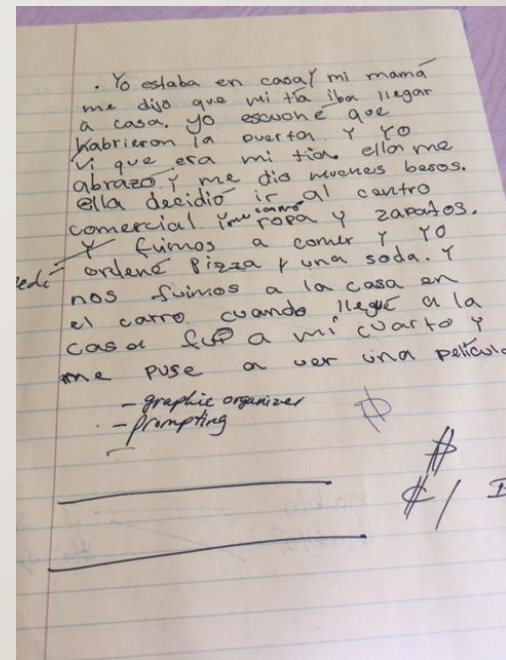 . Yo estaba en casa y mi mamá
me dijo que mi tía iba llegar
a casa. yo escuché que
habrieron la puerta y yo
vi que era mi tia. ella me
abrazó y me dio muchos besos.
ella decidió ir al centro
comercial y me compró ropa y zapatos.
y fuimos a comer y yo
ordené pizza y una soda. y
nos fuimos a la casa en
el carro cuando llegué a la
casa fue a mi cuarto y
me puse a ver una película
- graphic organizer
- prompting